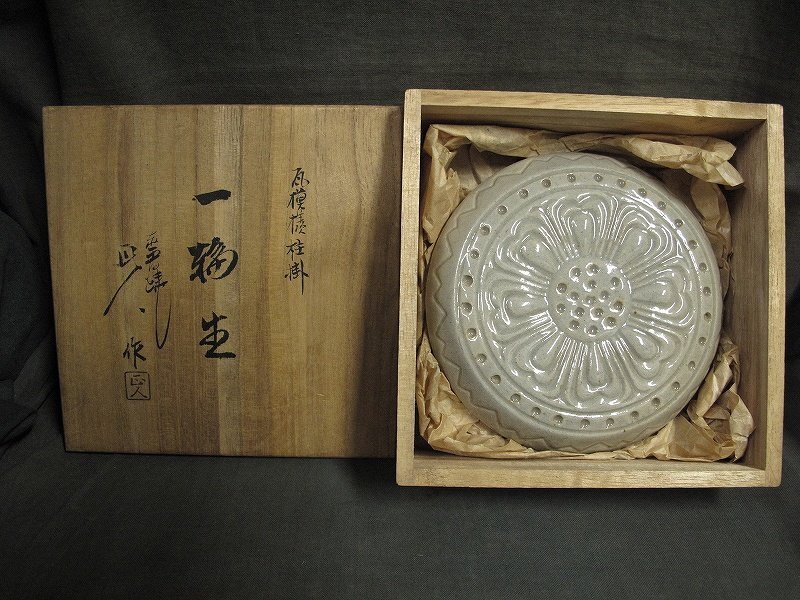 瓦模様柱掛
一輪生
正人作
正人